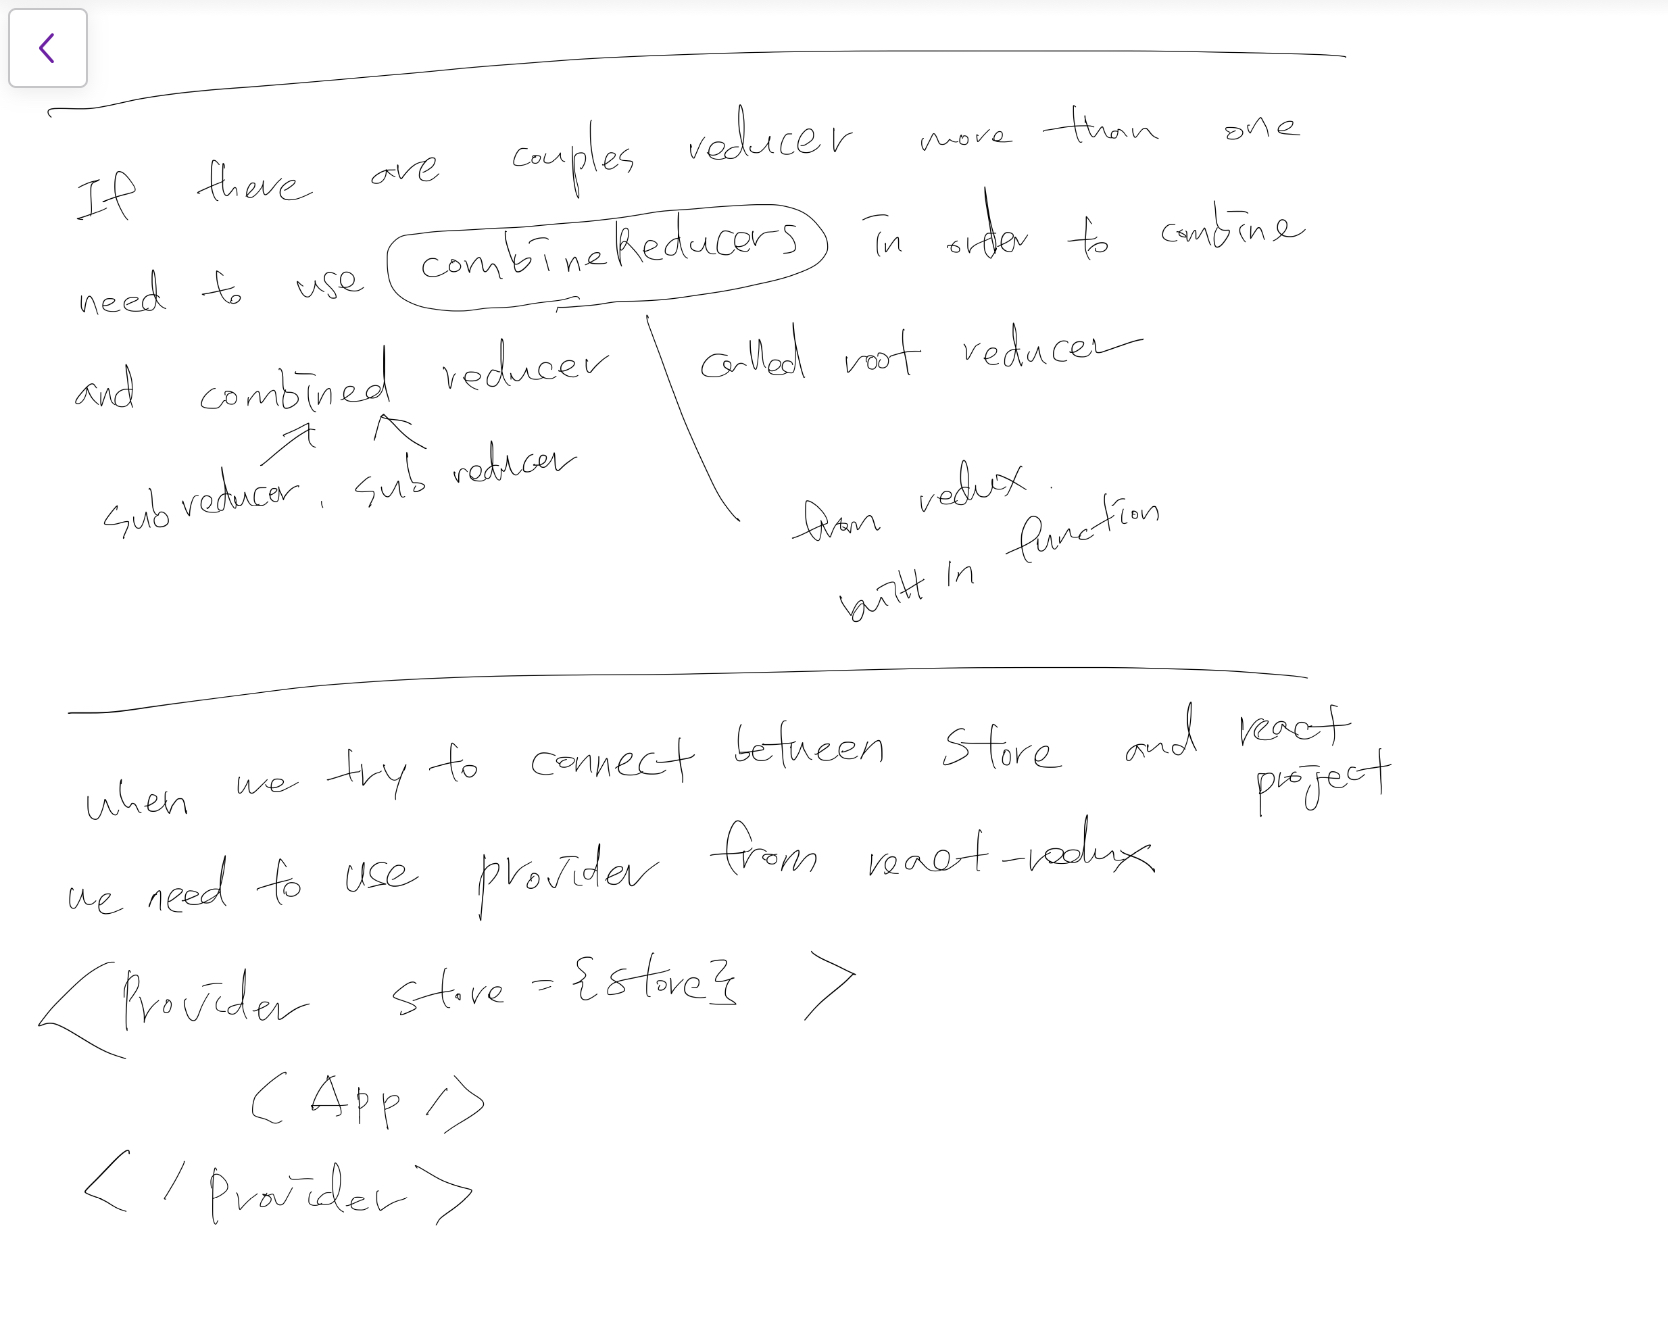 If there are couples reducer more than one
need to use combineReducers in order to combine
and combined reducer called root reducer
sub reducer, sub reducer
from redux.
built in function
when we try to connect between store and react
project
we need to use provider from react-redux
<Provider store = {store} >
<App />
</provider>